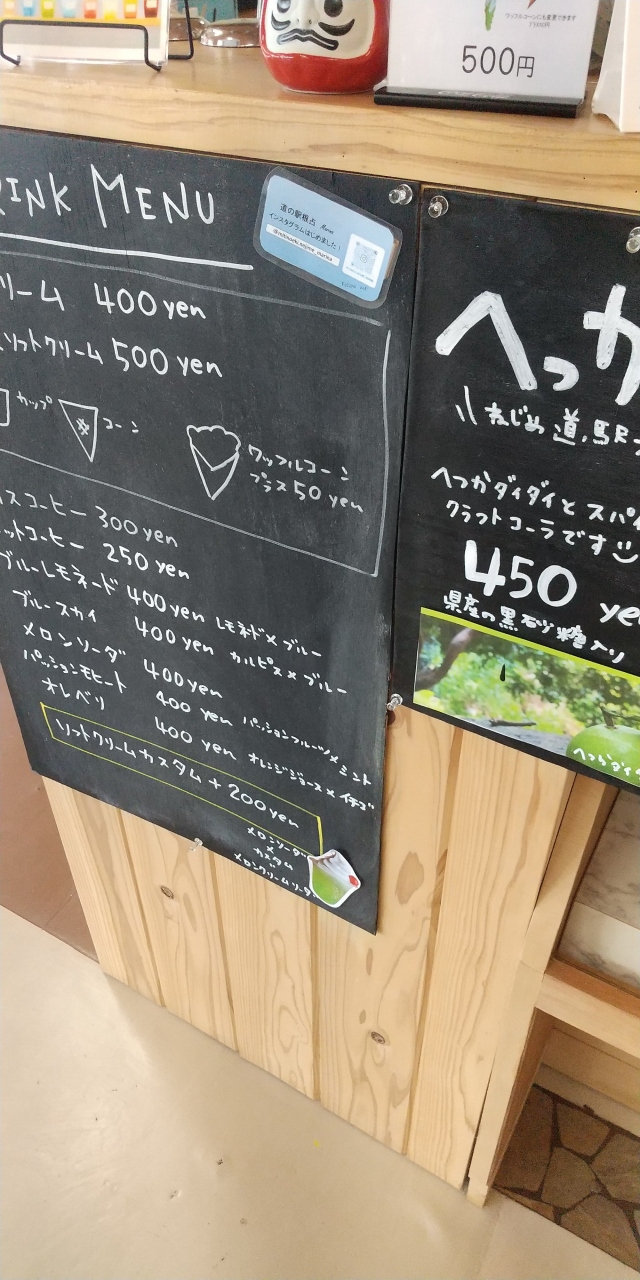 ワッフルコーンにも変更できます
500円
RINK MENU
道の駅根占
インスタグラムはじめました！
リーム 400 yen
ソフトクリーム 500 yen
カップ
コーン
ワッフルコーン
プラス 50 yen
スコーヒー 300 yen
ットコーヒー 250 yen
ブルーレモネード 400 yen レモネード×ブルー
ブルースカイ 400 yen カルピス×ブルー
メロンソーダ 400 yen
パッションモヒート 400 yen パッションフルーツ×ミント
オレベリ 400 yen オレンジジュース×イチゴ
ソフトクリームカスタム + 200 yen
メロンソーダ
×
カスタム
メロンクリームソーダ
へっか
ねじめ道の駅
へつかダイダイとスパイ
クラフトコーラです
450 ye
県産の黒砂糖入り
へつかダイ